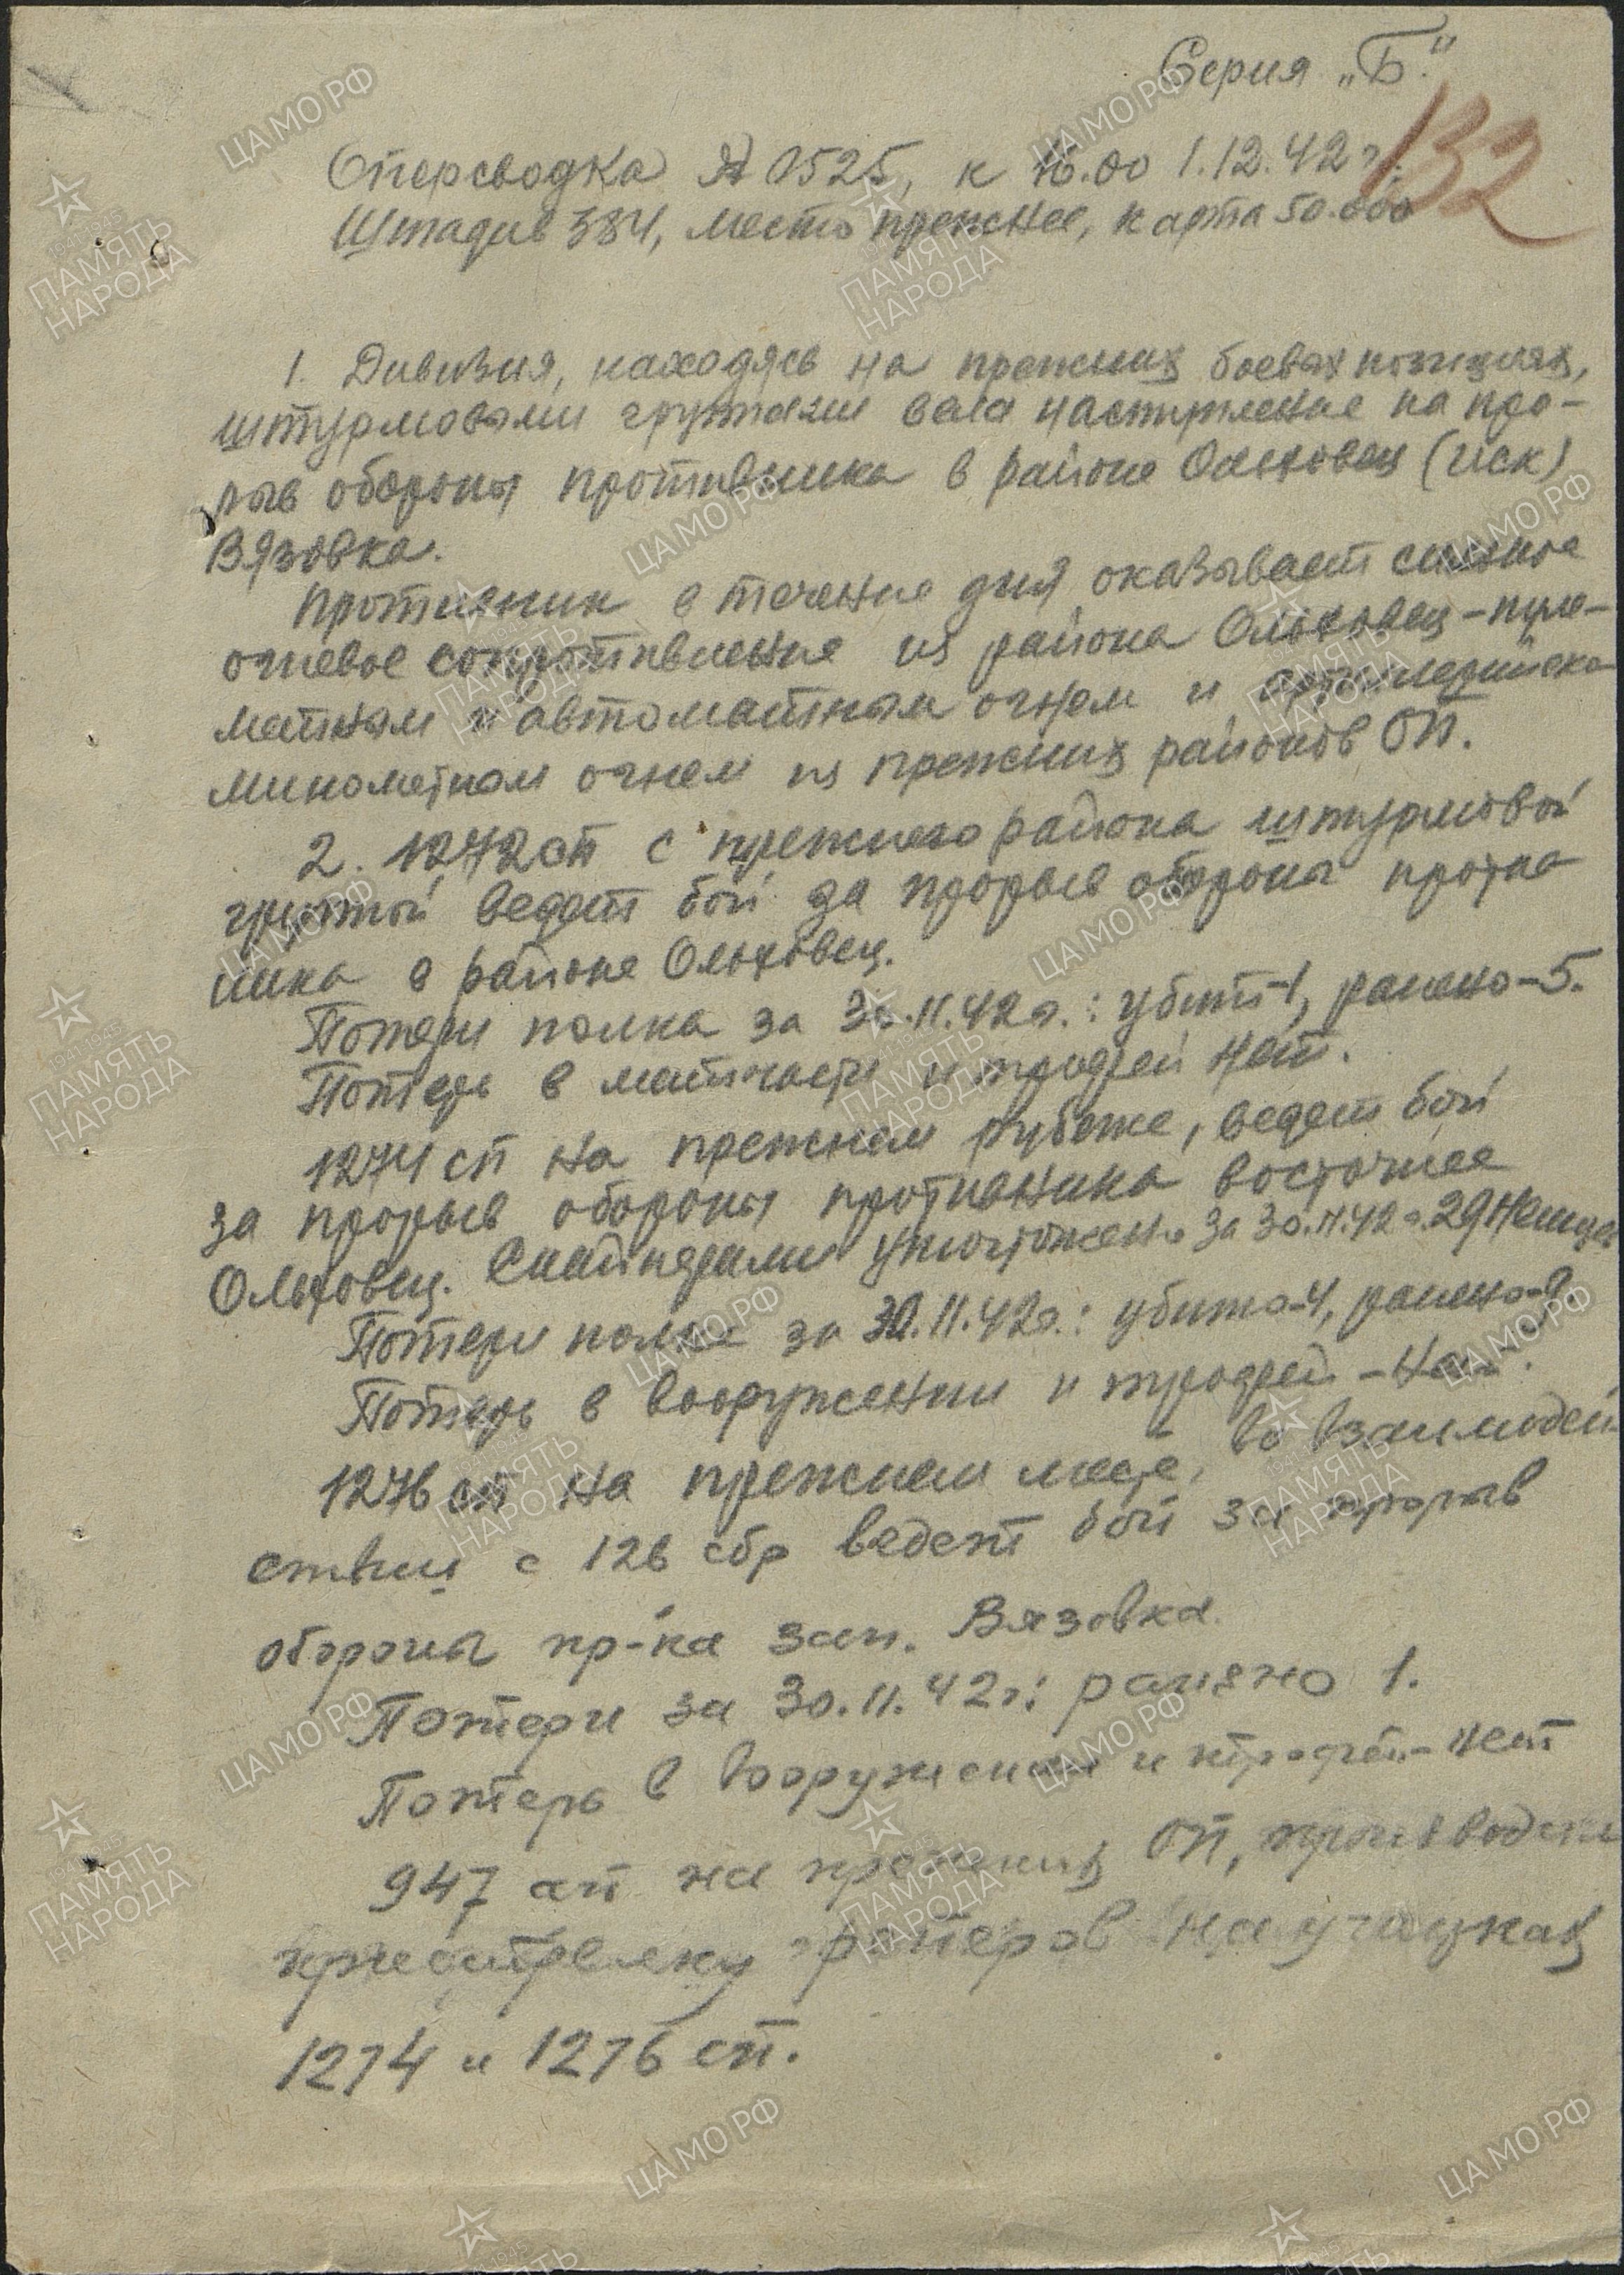 Серия „Б."
132
Оперсводка № 0525, к 16.00 1.12.42 г.
Штадив 384, место прежнее, карта 50.000
1. Дивизия, находясь на прежних боевых позициях,
штурмовыми группами вела наступление на про-
рыв обороны противника в районе Ольховец (иск)
Вязовка.
Противник в течение дня оказывает сильное
огневое сопротивление из района Ольховец - пуле-
метным и автоматным огнем и артиллерийско
минометном огнем из прежних районов ОП.
2. 1272 сп с прежнего района штурмовой
группой ведет бой за прорыв обороны против
ника в районе Ольховец.
Потери полка за 30.11.42 г.: убит-1, ранено-5.
Потерь в матчасти и трофей нет.
1274 сп на прежнем рубеже, ведет бой
за прорыв обороны противника восточнее
Ольховец. Снайперами уничтожено за 30.11.42 г. 29 немцев
Потери полка за 30.11.42 г.: убито-4, ранено-
Потерь в вооружении и трофей - нет.
1276 сп на прежнем месте, во взаимодей
ствии с 126 сбр ведет бой за прорыв
обороны пр-ка зап. Вязовка.
Потери за 30.11.42 г: ранено 1.
Потерь в вооружении и трофей - нет
947 ап на прежних ОП, производил
пристрелку реперов на участках
1274 и 1276 сп.